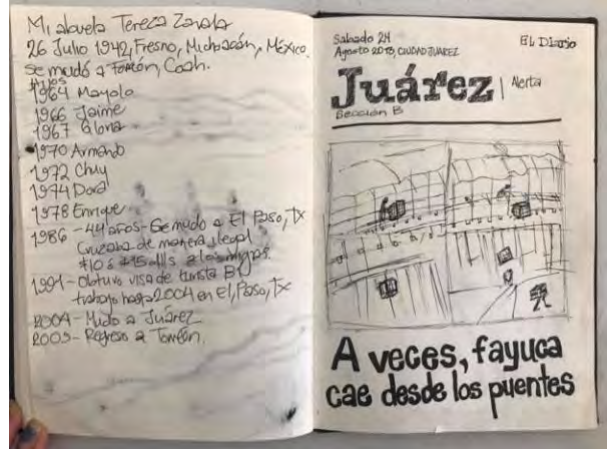 Mi abuela Tereza Zavala
26 Julio 1942, Fresno, Michoacán, México
se mudó a Torreón, Coah.
Hijos
1964 Mayola
1966 Jaime
1967 Gloria
1970 Armando
1972 Chuy
1974 Dora
1978 Enrique
1986 - 44 años - Se mudo a El Paso, Tx
Cruzaba de manera ilegal
$10 ó $15 dlls a los
1991 - Obtuvo visa de turista B1
trabajo hasta 2004 en El Paso, Tx
2004 - Mudo a Juárez
2005 - Regreso a Torreón.
Sabado 24
Agosto 2013, CIUDAD JUAREZ
El Diario
Juárez | Alerta
Sección B
A veces, fayuca
cae desde los puentes